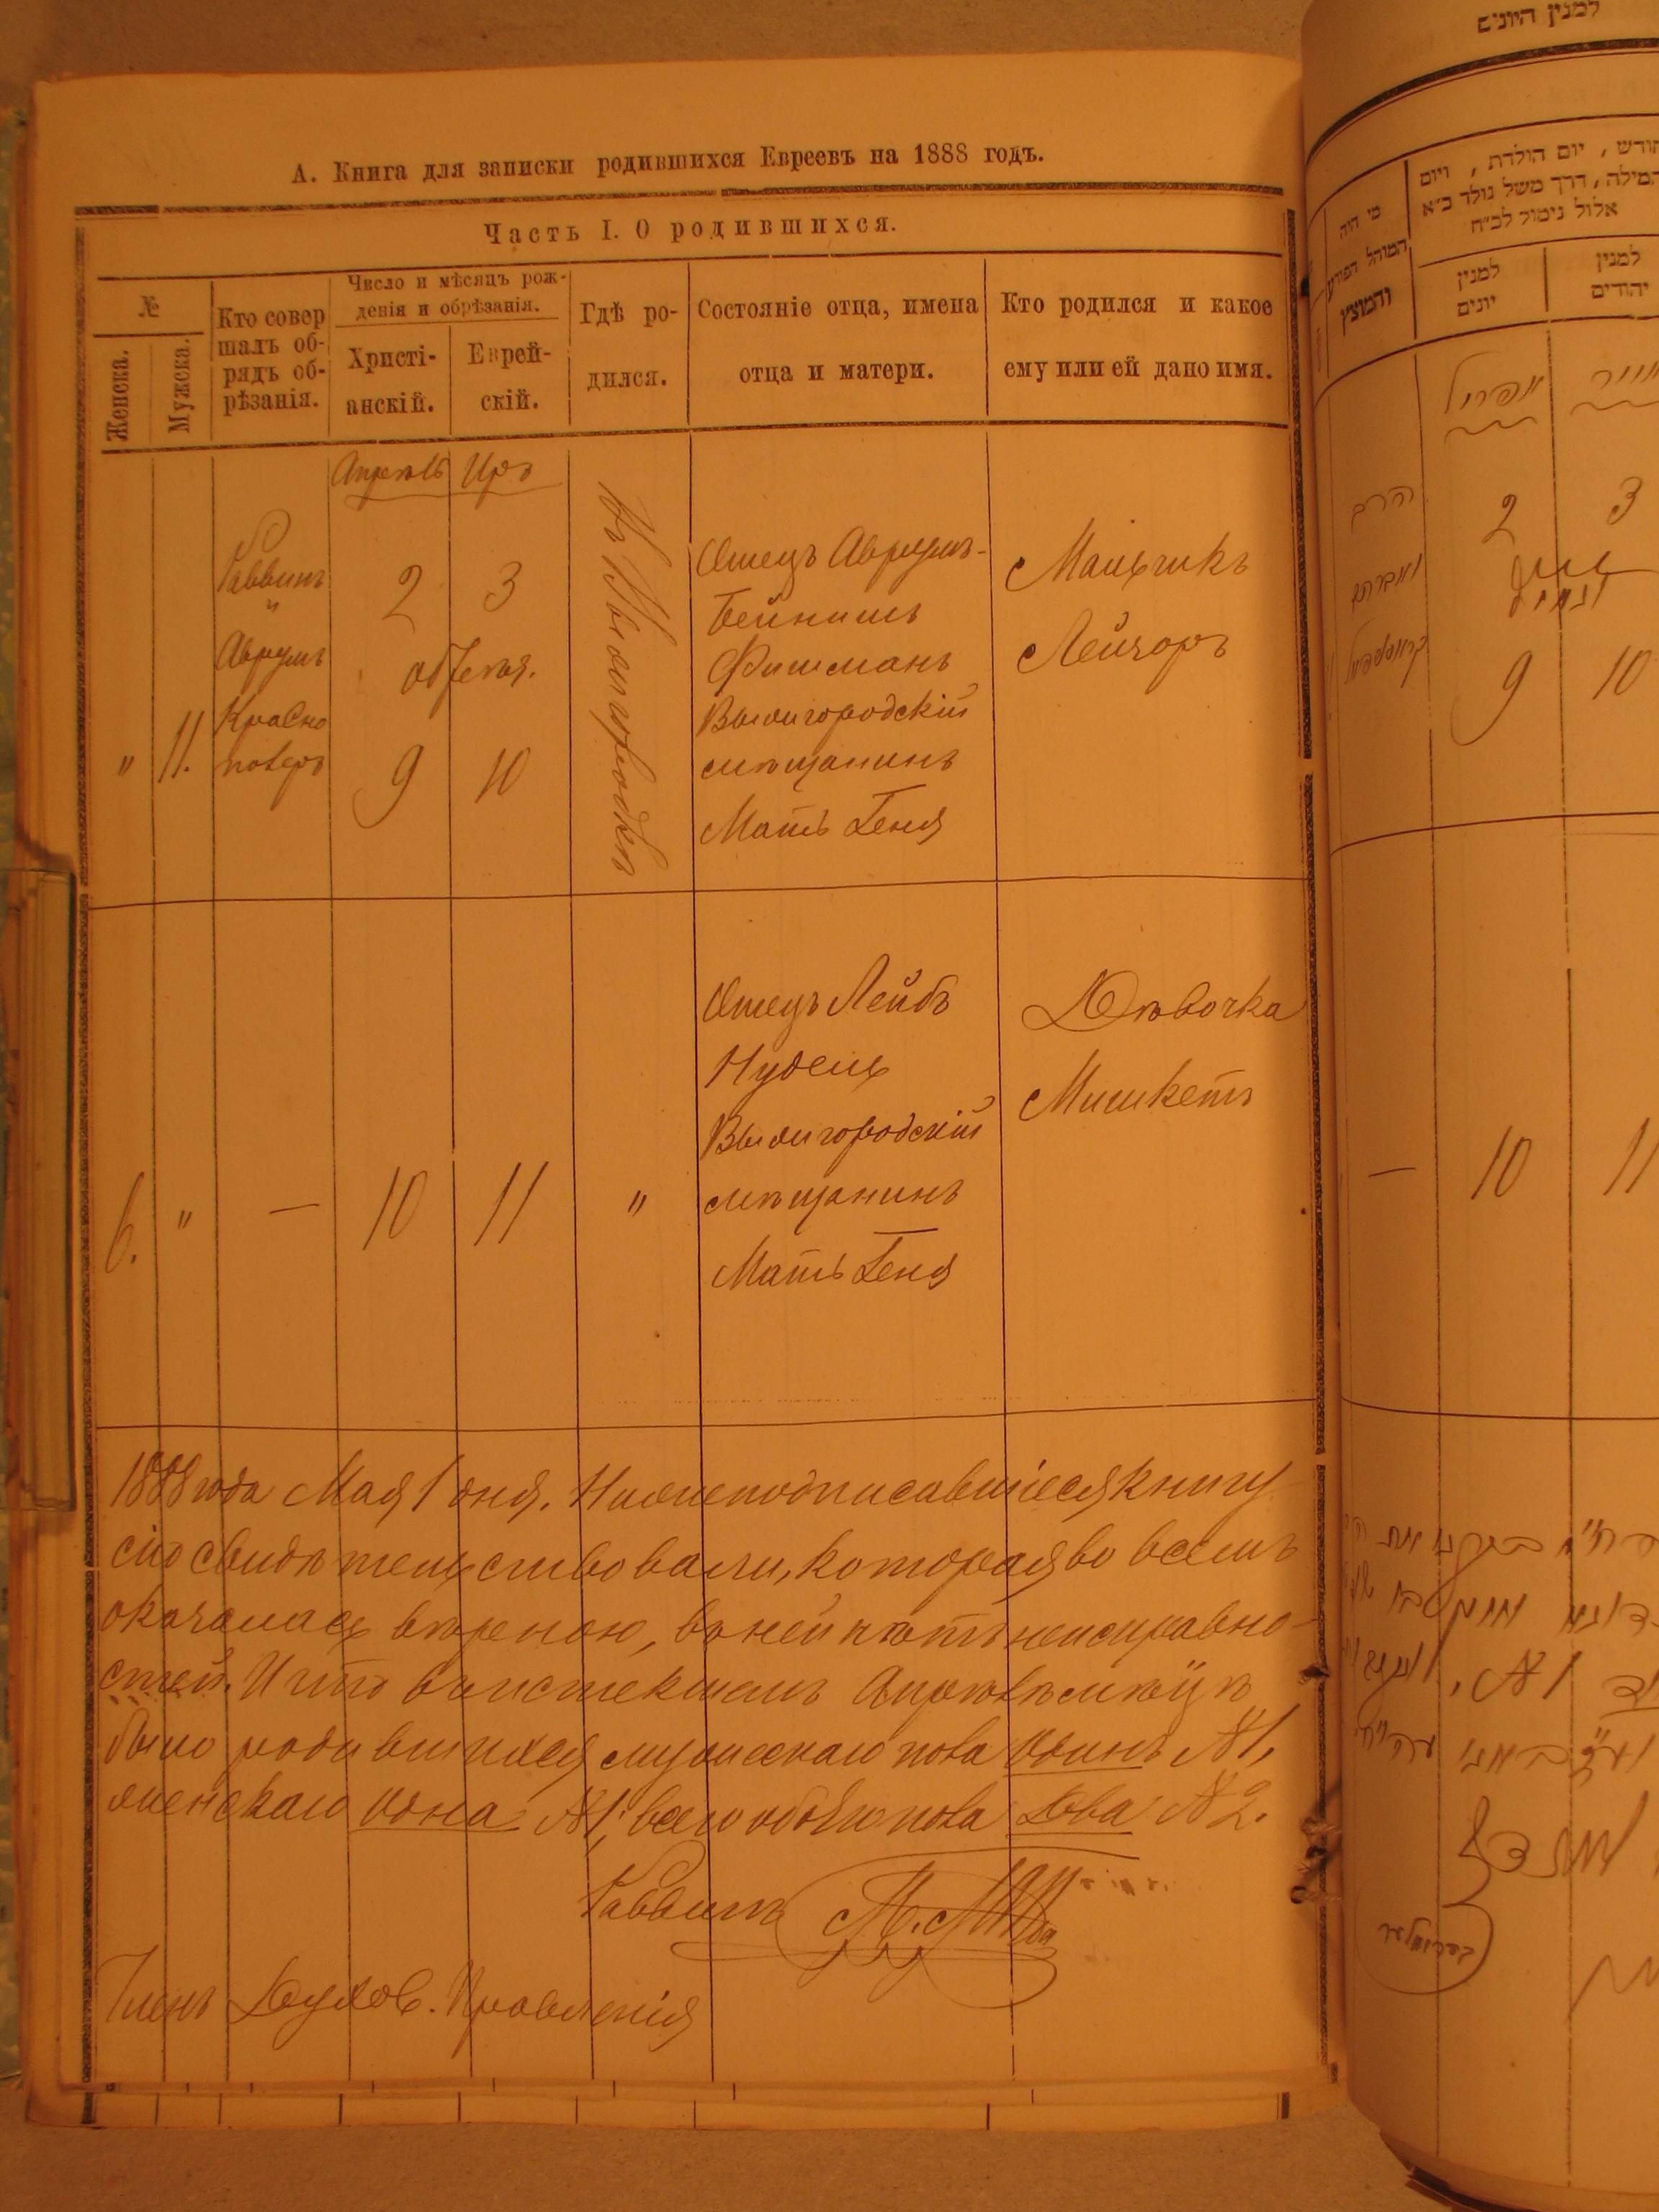 А. Книга для записки родившихся Евреевъ на 1888 годъ.
Часть I. О родившихся.
№
Женска.
Мужска.
Кто совер
шалъ об-
рядъ об-
рѣзанія.
Число и мѣсяцъ рож-
денія и обрѣзанія.
Христі-
анскій.
Еврей-
скій.
Гдѣ ро-
дился.
Состояніе отца, имена
отца и матери.
Кто родился и какое
ему или ей дано имя.
Апрель Иръ
"
11.
Раввинъ
и
Аврумъ
Красно
2 3
обрезан.
9 10
Отецъ Аврумъ-
Бейнишъ
Фишманъ
Вышгородскій
мѣщанинъ
Мать Геня
Мальчикъ
Лейзоръ
6.
"
—
10 11
"
Отецъ Лейбъ
Нудель
Вышгородскій
мѣщанинъ
Мать Геня
Дѣвочка
1888 года Мая 1 дня. Нижеподписавшіеся книгу
сію свидѣтельствовали, которая во всемъ
оказалась вѣрною, въ ней нѣтъ неисправно-
стей. И что въ истекшемъ Апрѣлѣ мѣсяцѣ
было родившихся мужескаго пола одинъ № 1,
женскаго одна № 1, всего обоего пола два № 2.
Раввинъ
Членъ Духов. Правленія
למנין היונים
חודש, יום הולדת, ויום
המילה, דרך משל נולד כ״א
אלול נימול לכ״ח
מי היה
המוהל הפורע
והמוצץ
למנין
יונים
למנין
יהודים
אפריל
אייר
2 3
9 10
— 10 11